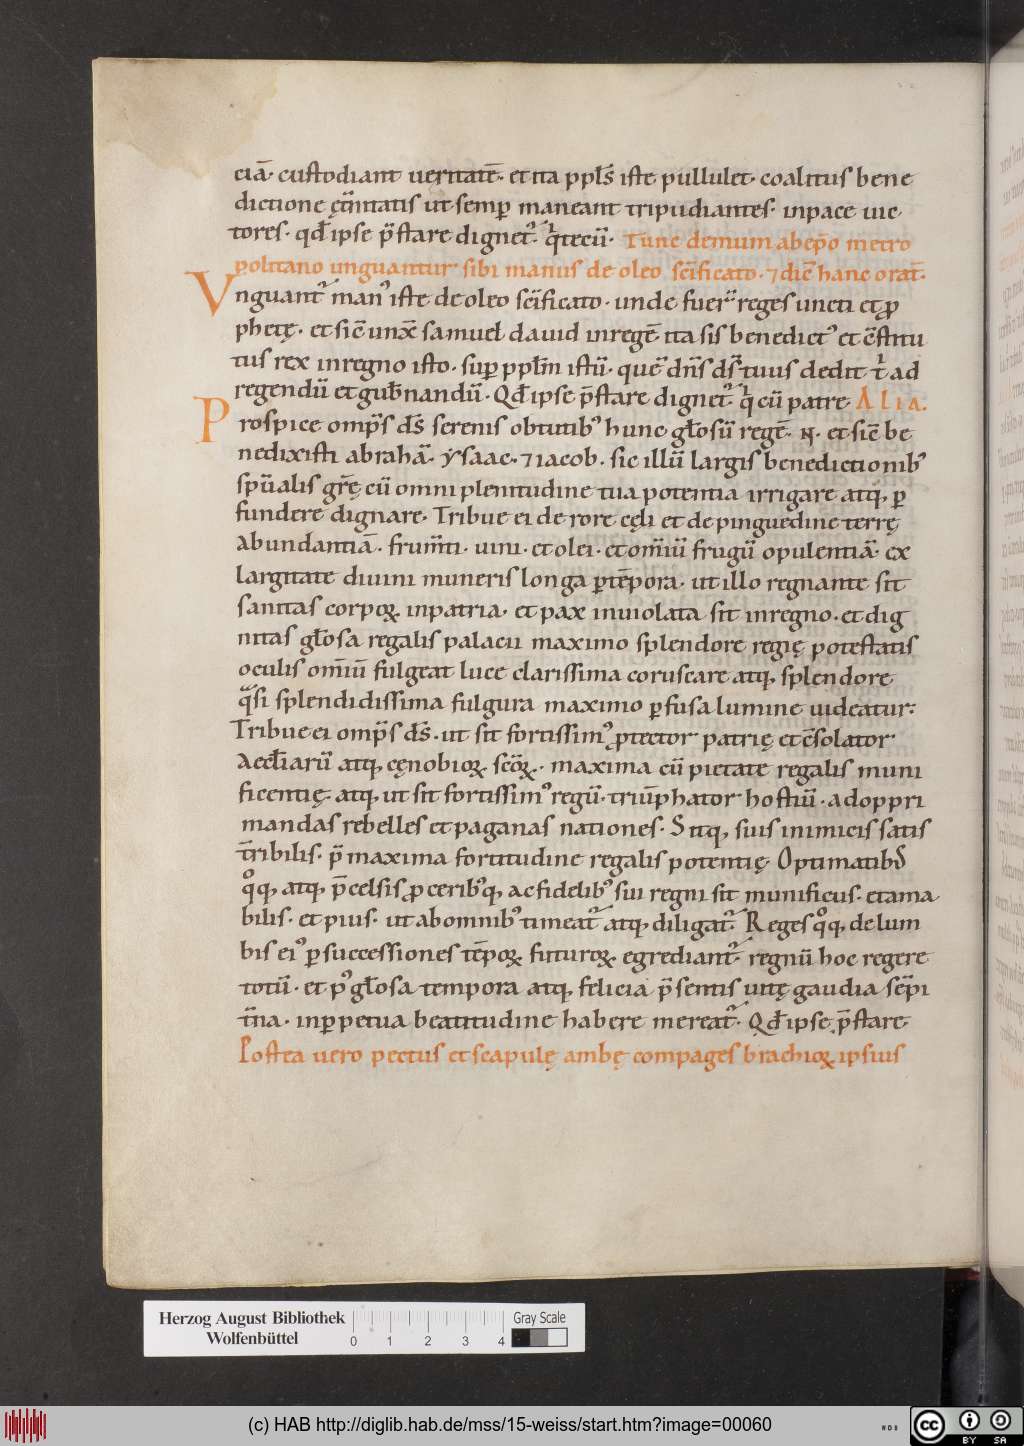 ciā· custodiant ueritatē· et ita pplˉs iste pullulet· coalitus bene
dictione ęt̄nitatis ut semp̄ maneant tripudiantes· inpace uic
tores· qđ ipse p̄stare dignet᷒· q̇ tecū· Tunc demum ab ep̄o metro
politano unguantur sibi manus de oleo sc̄ificato· ⁊ dic̄ hanc orat̄·
Vnguant᷒ man᷒ iste de oleo sc̄ificato· unde fuer̄ reges uncti et ꝓ
phetę· et sic̄ unx̄ samuel dauid inregē· ita sis benedict᷒ et c̄stitu
tus rex inregno isto· sup̄ pplm̄ istū· quē dn̄s ds̄ tuus dedit ṫ ad
regendū et gub̄nandū· Qđ ipse p̄stare dignet᷒· q̇ cū patre· ALIA·
Prospice omp̄s ds̄ serenis obtutib᷒ hunc gl̄osū regē· N̄· et sic̄ be
nedixisti abrahā· ysaac· ⁊ iacob· sic illū largis benedictionib᷒
sp̄ualis gr̄ę cū omni plenitudine tua potentia irrigare atq, ꝑ
fundere dignare· Tribue ei de rore cęli et de pinguedine terrę
abundantiā· frum̄ti· uini· et olei· et om̄iū frugū opulentiā· ex
largitate diuini muneris longa p̱ tēpora· ut illo regnante sit
sanitas corpoꝝ inpatria· et pax inuiolata sit inregno· et dig
nitas gl̄osa regalis palacii maximo splendore regię potestatis
oculis om̄iū fulgeat luce clarissima coruscare atq, splendore
q̄si splendidissima fulgura maximo ꝑfusa lumine uideatur·
Tribue ei omp̄s ds̄· ut sit fortissim᷒ ꝓtector patrię et c̄solator
aeccl̄iarū atq, cęnobioꝝ sc̄oꝝ· maxima cū pietate regalis muni
ficentię· atq, ut sit fortissim᷒ regū· triūphator hostiū· ad oppri
mandas rebelles et paganas nationes· Sitq, suis inimicis satis
t̄ribilis· p̄ maxima fortitudine regalis potentię· Optimatib᷒
q̊q, atq, p̄celsis ꝓcerib᷒q, ac fidelib᷒ sui regni sit munificus· et ama
bilis· et pius· ut abomnib᷒ timeat᷒ atq, diligat᷒· Reges q̊q, de lum
bis ei᷒ ꝑ successiones tēpoꝝ futuroꝝ egrediant᷒ regnū hoc regere
totū· et p᷒ gl̄osa tempora atq, felicia p̄sentis uitę gaudia sēpi
t̄na· inꝑpetua beatitudine habere mereat᷒· Qđ ipse p̄stare·
Postea uero pectus et scapulę ambę compages brachioꝝ ipsius
Herzog August Bibliothek
Wolfenbüttel
0 1 2 3 4
Gray Scale
(c) HAB http://diglib.hab.de/mss/15-weiss/start.htm?image=00060
cc BY SA